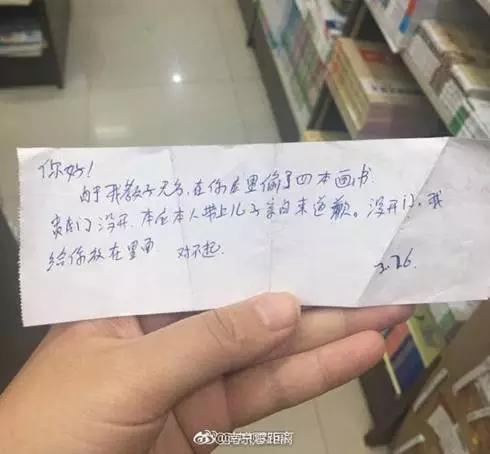 你好!
由于我教子无方,在你店里偷了四本画书.
门没开.本人带上儿子亲自来道歉。没开门,我
给你放在里面 对不起.
3.26.
@南京零距离